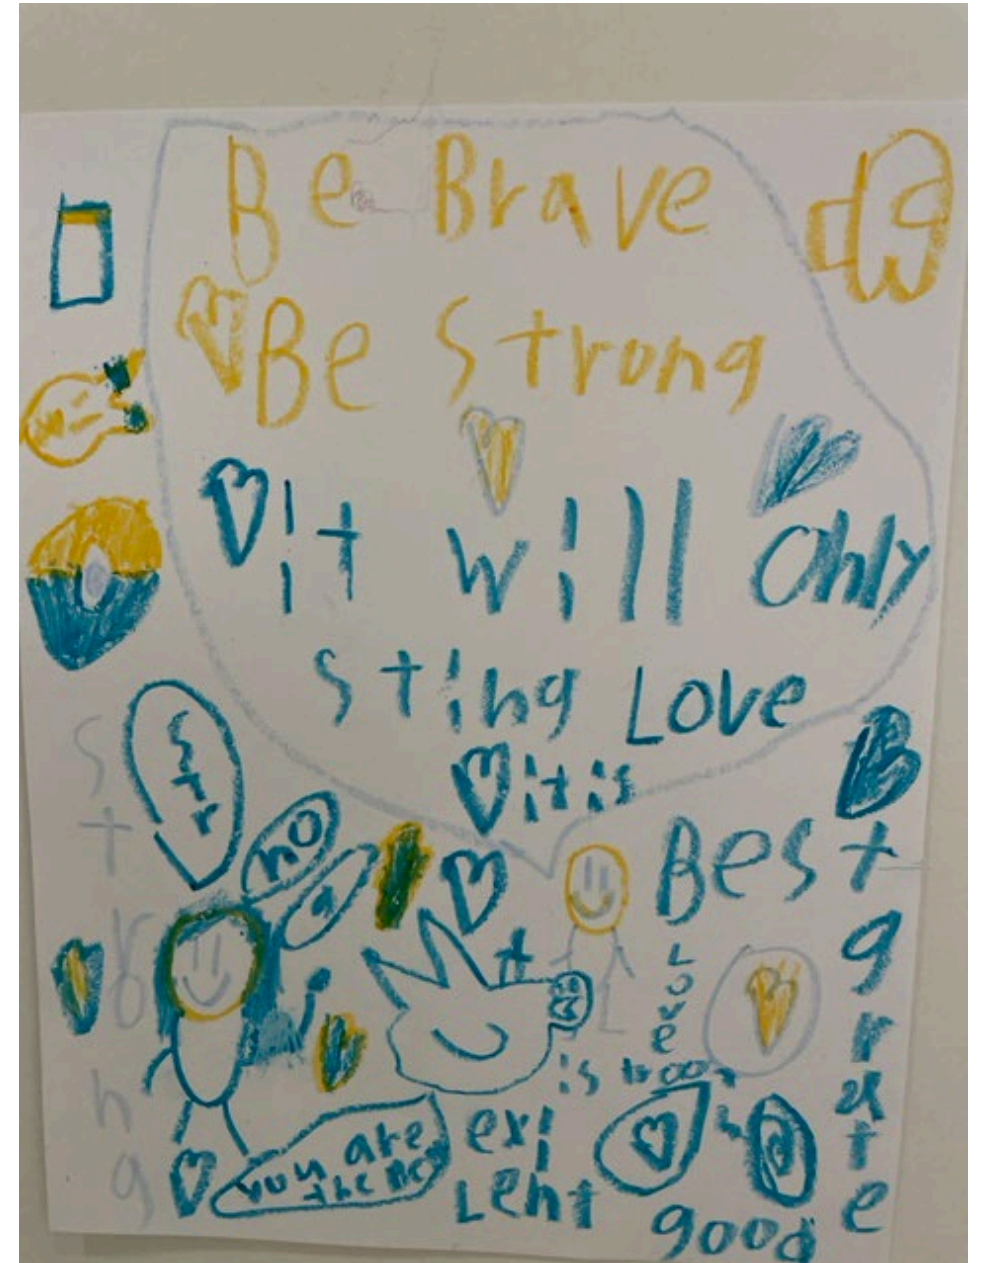 Be Brave
Be Strong
it will only
sting Love
it is
Best
Strong
Str
no
g
Love
is
grate
you are
the
exi
Lent
good